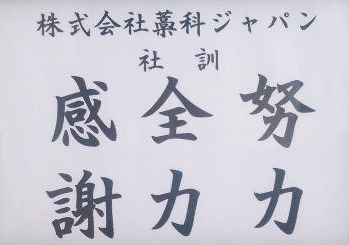 株式会社藁科ジャパン
社訓
努力
全力
感謝